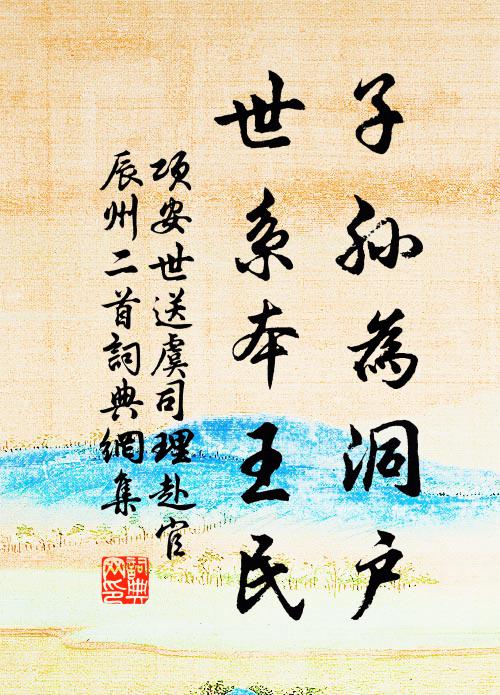 子孫為洞户
世系本王民
項安世送虞司理赴官
辰州二首詞典網集
詞典网印